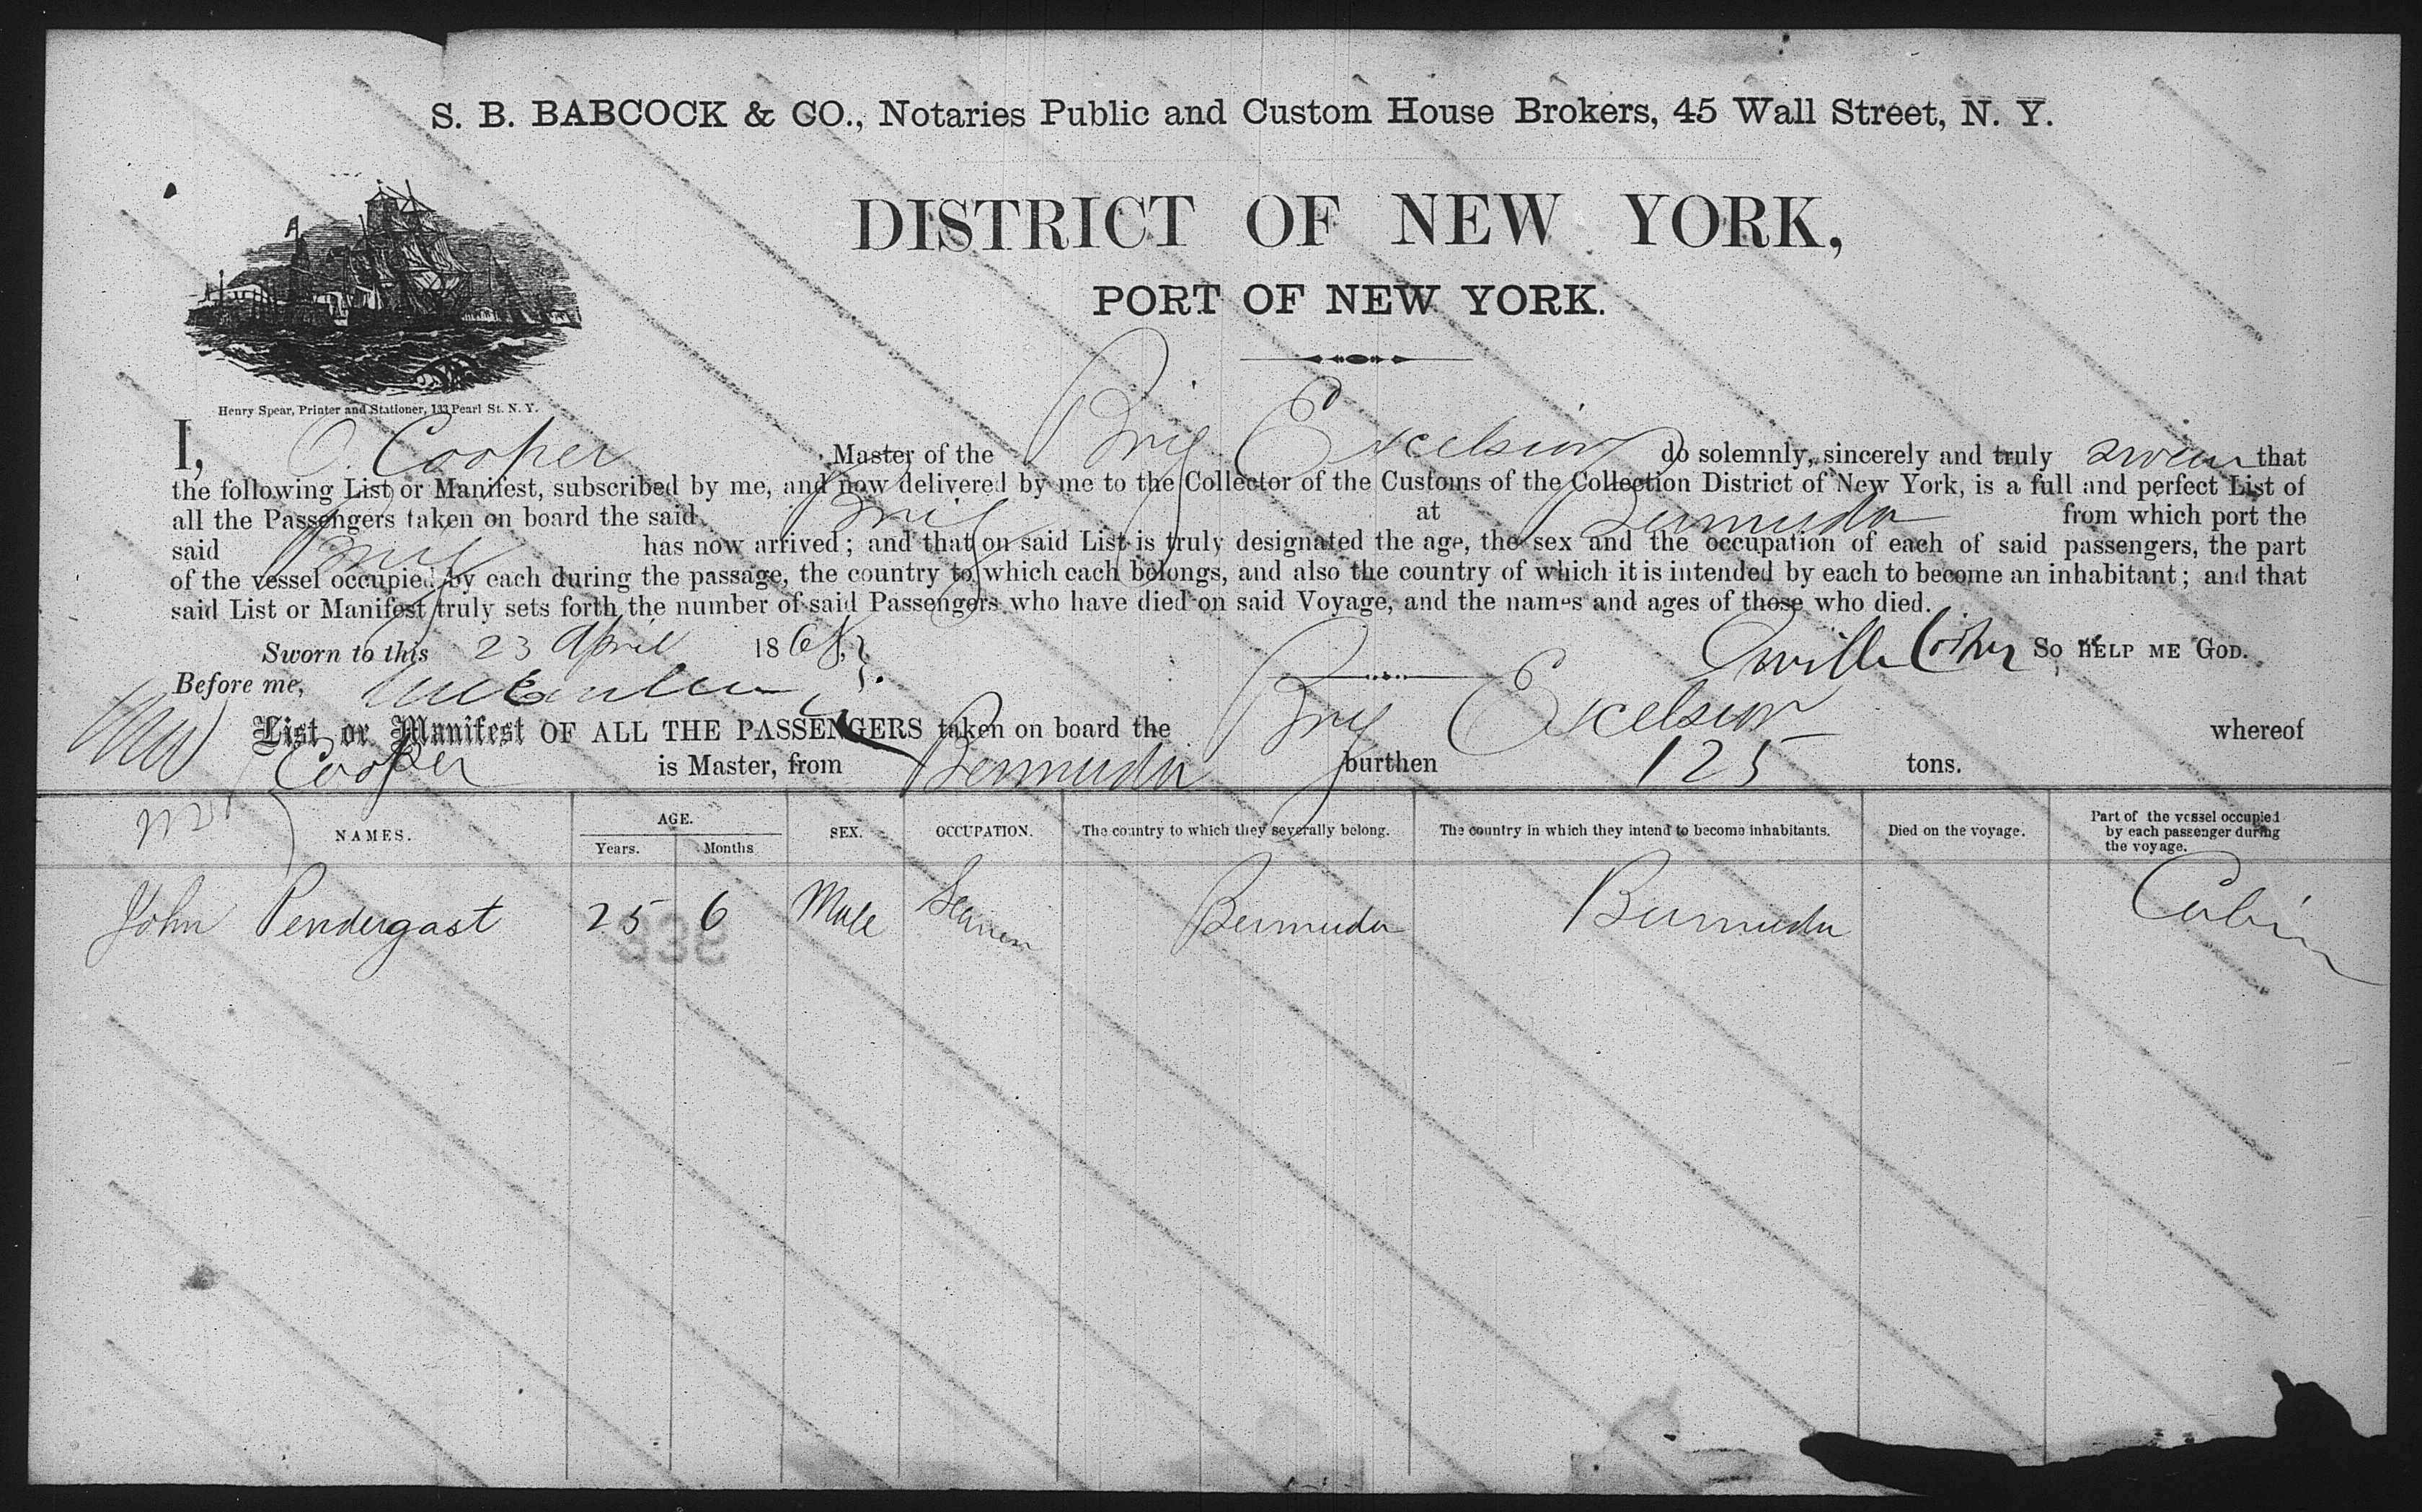 S. B. BABCOCK & CO., Notaries Public and Custom House Brokers, 45 Wall Street, N. Y.
DISTRICT OF NEW YORK,
PORT OF NEW YORK.
Henry Spear, Printer and Stationer, 133 Pearl St. N. Y.
I, O. Cooper Master of the Brig Excelsior do solemnly, sincerely and truly swear that
the following List or Manifest, subscribed by me, and now delivered by me to the Collector of the Customs of the Collection District of New York, is a full and perfect List of
all the Passengers taken on board the said Brig at Bermuda from which port the
said Brig has now arrived; and that on said List is truly designated the age, the sex and the occupation of each of said passengers, the part
of the vessel occupied by each during the passage, the country to which each belongs, and also the country of which it is intended by each to become an inhabitant; and that
said List or Manifest truly sets forth the number of said Passengers who have died on said Voyage, and the names and ages of those who died.
Sworn to this 23 April 1868. SO HELP ME GOD.
Before me,
List or Manifest OF ALL THE PASSENGERS taken on board the Brig Excelsior whereof
Cooper is Master, from Bermuda burthen 125 tons.
NAMES. AGE. Years. Months SEX. OCCUPATION. The country to which they severally belong. The country in which they intend to become inhabitants. Died on the voyage. Part of the vessel occupied by each passenger during the voyage.
John Pendergast 25 6 Male Seamen Bermuda Bermuda Cabin